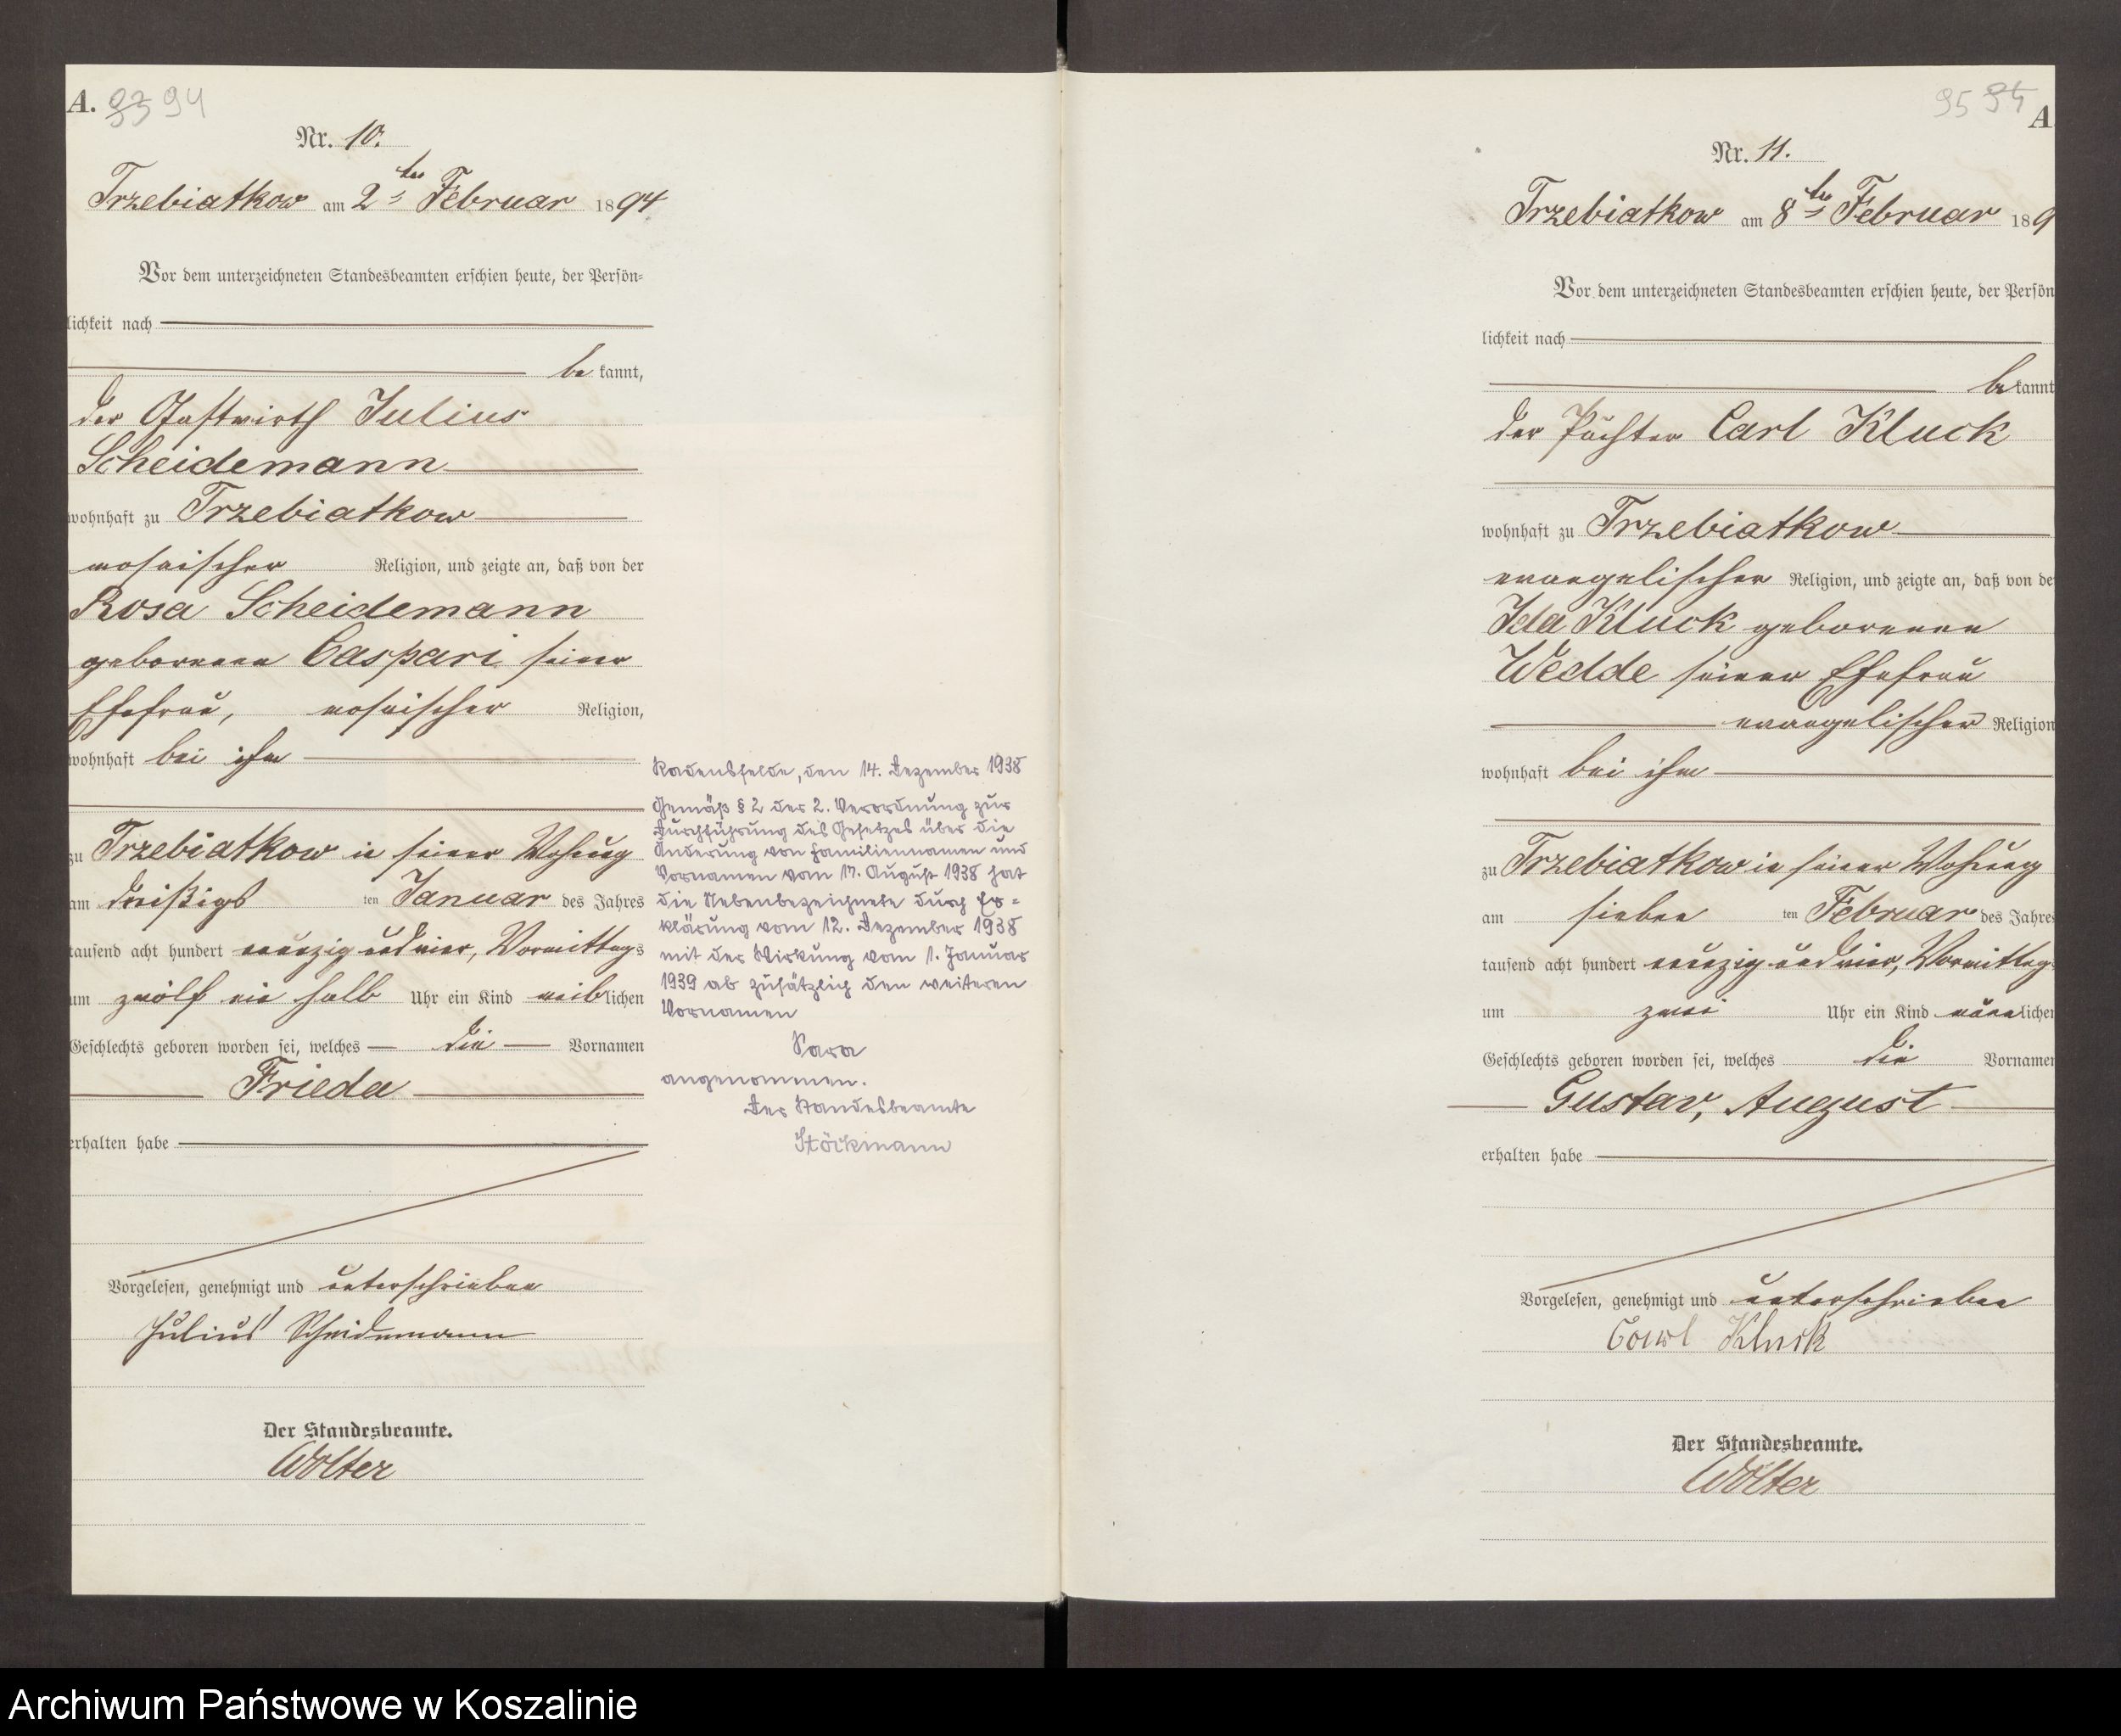 A. 93 94
Nr. 10.
Trzebiatkow am 2ten Februar 1894
Vor dem unterzeichneten Standesbeamten erschien heute, der Persön-
lichkeit nach
be kannt,
der Gastwirth Julius
Scheidemann
wohnhaft zu Trzebiatkow
mosaischer Religion, und zeigte an, daß von der
Rosa Scheidemann
geborenen Caspari seiner
Ehefrau, mosaischer Religion,
wohnhaft bei ihm
zu Trzebiatkow in seiner Wohnung
am dreißigs ten Januar des Jahres
tausend acht hundert neunzig und vier, Vormittags
um zwölf ein halb Uhr ein Kind weiblichen
Geschlechts geboren worden sei, welches die Vornamen
Frieda
erhalten habe
Vorgelesen, genehmigt und unterschrieben
Julius Scheidemann
Der Standesbeamte.
Wolter
Radensfelde, den 14. Dezember 1938
Gemäß § 2 der 2. Verordnung zur
Durchführung des Gesetzes über die
Änderung von Familiennamen und
Vornamen vom 17. August 1938 hat
die Nebenbezeichnete durch Er=
klärung vom 12. Dezember 1938
mit der Wirkung vom 1. Januar
1939 ab zusätzlich den weiteren
Vornamen
Sara
angenommen.
Der Standesbeamte
Stöckmann
95 94
A
Nr. 11.
Trzebiatkow am 8ten Februar 189
Vor dem unterzeichneten Standesbeamten erschien heute, der Persön
lichkeit nach
be kannt
der Pächter Carl Kluck
wohnhaft zu Trzebiatkow
evangelischer Religion, und zeigte an, daß von de
Ida Kluck geborenen
Wedde seiner Ehefrau
evangelischer Religion
wohnhaft bei ihm
zu Trzebiatkow in seiner Wohnung
am sieben ten Februar des Jahres
tausend acht hundert neunzig und vier, Vormittag
um zwei Uhr ein Kind männlichen
Geschlechts geboren worden sei, welches die Vornamen
Gustav, August
erhalten habe
Vorgelesen, genehmigt und unterschrieben
Carl Kluck
Der Standesbeamte.
Wolter
Archiwum Państwowe w Koszalinie